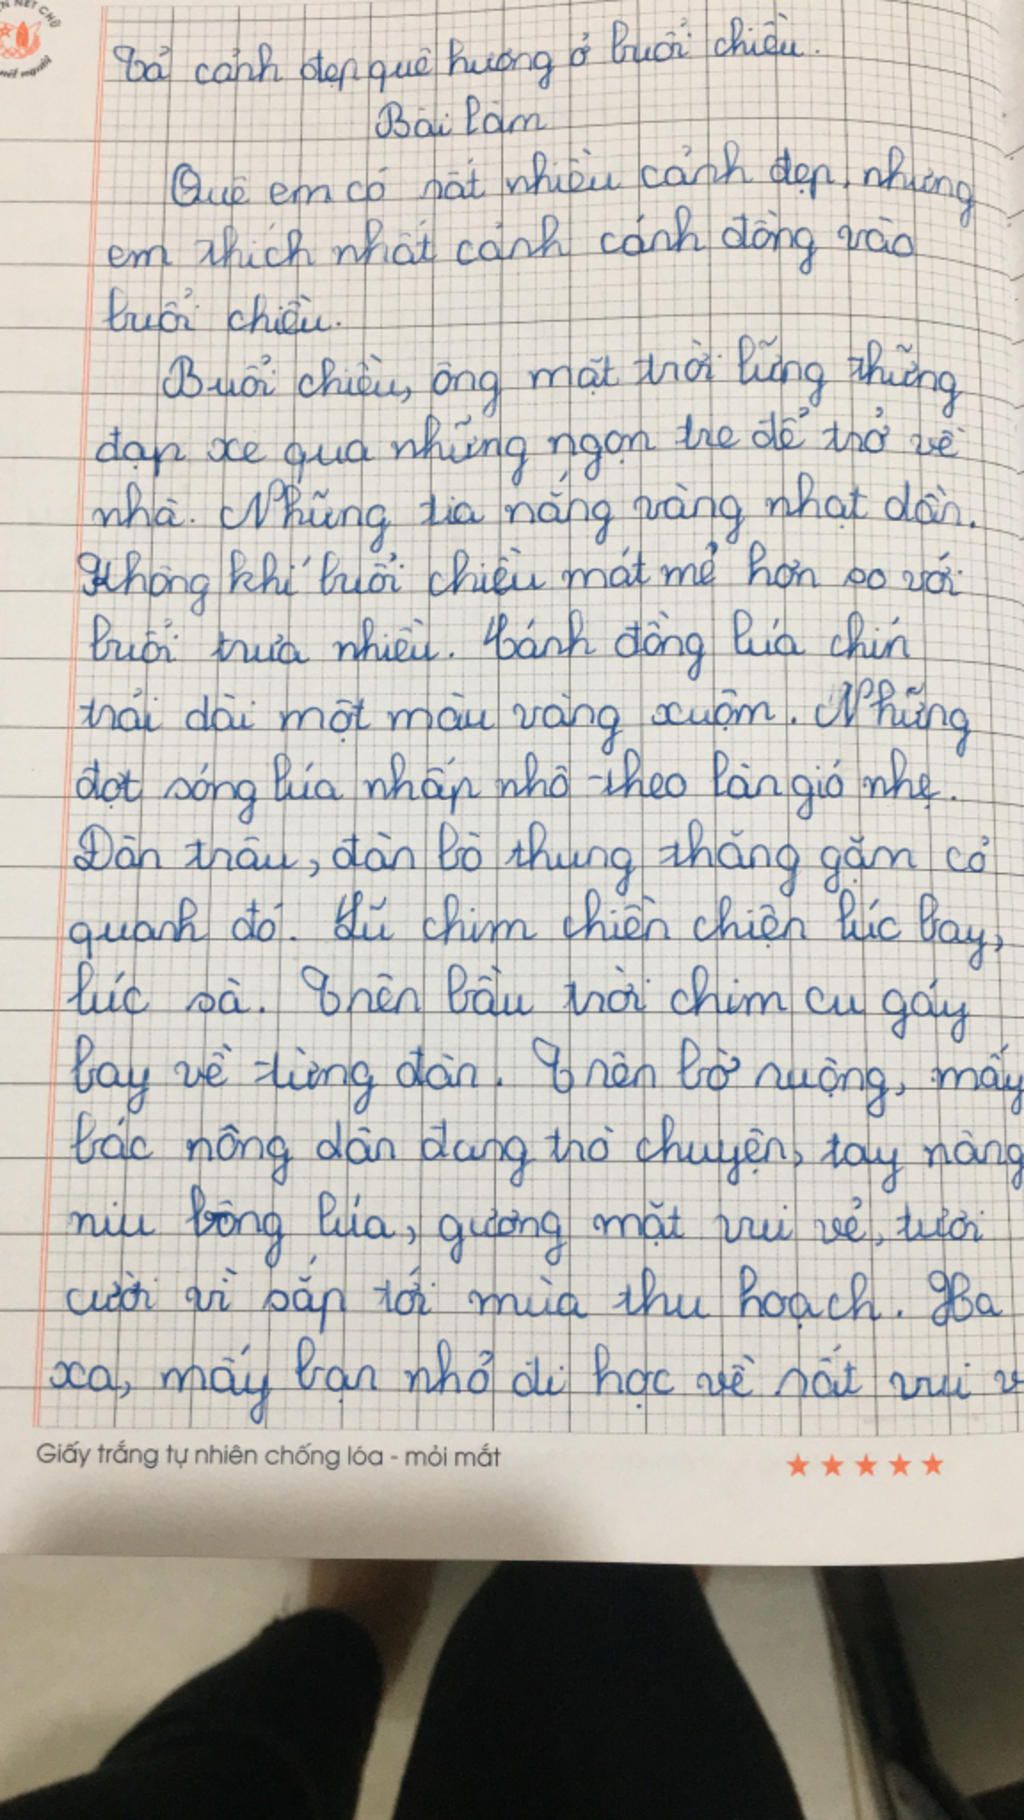 NÉT CHỮ
Tả cảnh đẹp quê hương ở buổi chiều.
Bài làm
Quê em có rất nhiều cảnh đẹp, nhưng
em thích nhất cảnh cánh đồng vào
buổi chiều.
Buổi chiều, ông mặt trời lững thững
đạp xe qua những ngọn tre để trở về
nhà. Những tia nắng vàng nhạt dần.
Không khí buổi chiều mát mẻ hơn so với
buổi trưa nhiều. Cánh đồng lúa chín
trải dài một màu vàng xuộm. Những
đợt sóng lúa nhấp nhô theo làn gió nhẹ.
Đàn trâu, đàn bò thung thăng gặm cỏ
quanh đó. Lũ chim chiền chiện lúc bay,
lúc sà. Trên bầu trời chim cu gáy
bay về từng đàn. Trên bờ ruộng, mấy
bác nông dân đang trò chuyện, tay nâng
niu bông lúa, gương mặt vui vẻ, tươi
cười vì sắp tới mùa thu hoạch. Xa
xa, mấy bạn nhỏ đi học về rất vui v
Giấy trắng tự nhiên chống lóa - mỏi mắt